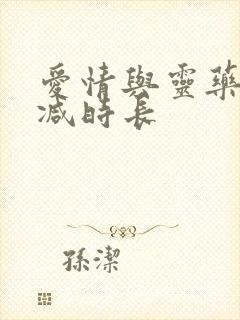 愛情與靈藥
減時長
孫潔